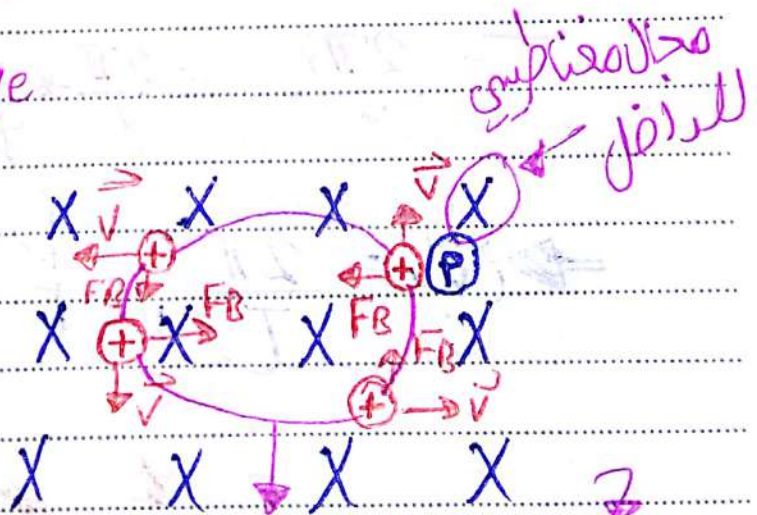 e
مجال مغناطيسي
للداخل
X X X X
V V
+ + P
FB FB FB FB
X + X X X
V + V
X X X X